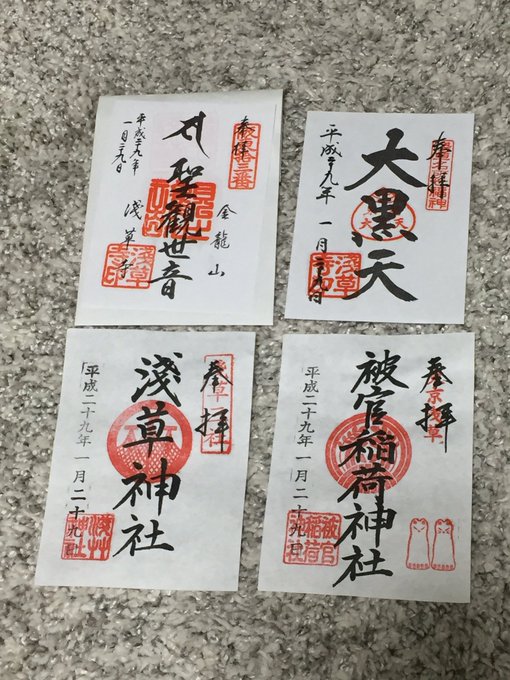 奉拝
聖観世音
金龍山
浅草寺
平成二十九年
一月二十九日
奉拝
大黒天
平成二十九年 一月二十九日
浅草
奉拝
淺草神社
平成二十九年一月二十九日
奉拝
被官稲荷神社
平成二十九年一月二十九日